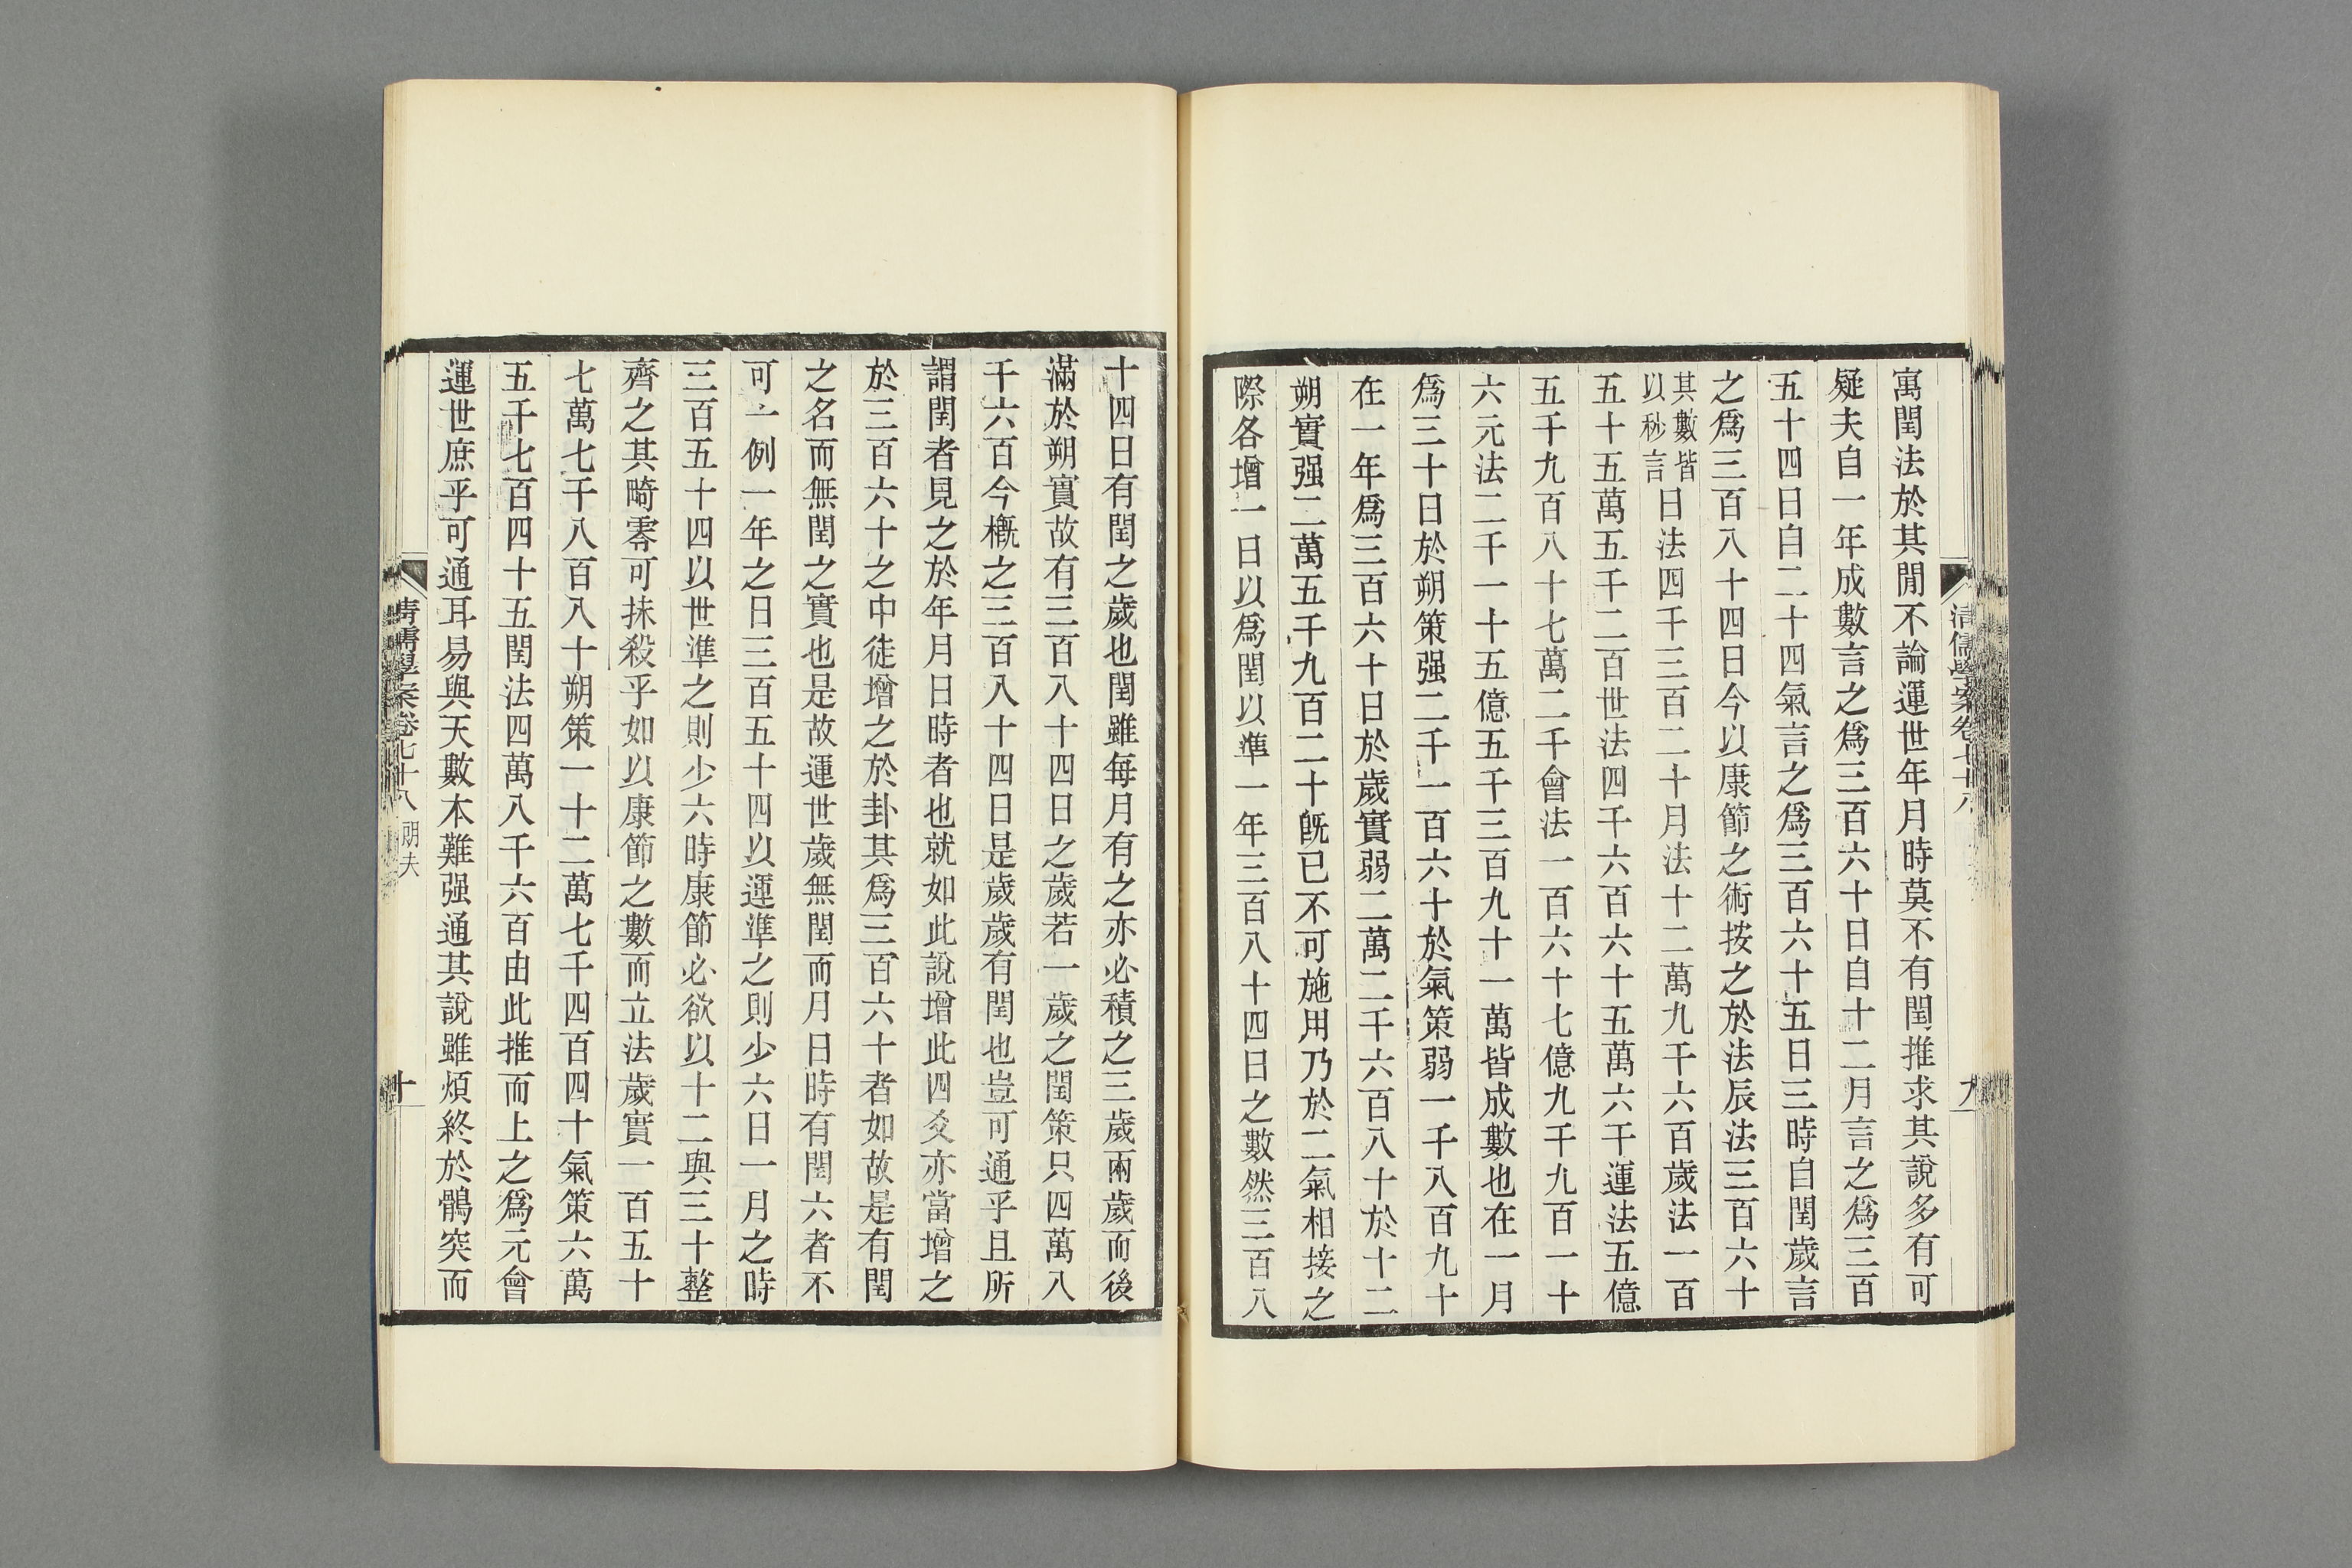 寓閏法於其閒不論運世年月時莫不有閏推求其說多有可
疑夫自一年成數言之爲三百六十日自十二月言之爲三百
五十四日自二十四氣言之爲三百六十五日三時自閏歲言
之爲三百八十四日今以康節之術按之於法辰法三百六十
其數皆
以秒言
日法四千三百二十月法十二萬九千六百歲法一百
五十五萬五千二百世法四千六百六十五萬六千運法五億
五千九百八十七萬二千會法一百六十七億九千九百一十
六元法二千一十五億五千三百九十一萬皆成數也在一月
爲三十日於朔策强二千一百六十於氣策弱一千八百九十
在一年爲三百六十日於歲實弱二萬二千六百八十於十二
朔實强二萬五千九百二十旣已不可施用乃於二氣相接之
際各增一日以爲閏以準一年三百八十四日之數然三百八
清儒學案卷七十八
九
十四日有閏之歲也閏雖每月有之亦必積之三歲兩歲而後
滿於朔實故有三百八十四日之歲若一歲之閏策只四萬八
千六百今槪之三百八十四日是歲歲有閏也豈可通乎且所
謂閏者見之於年月日時者也就如此說增此四爻亦當增之
於三百六十之中徒增之於卦其爲三百六十者如故是有閏
之名而無閏之實也是故運世歲無閏而月日時有閏六者不
可一例一年之日三百五十四以運準之則少六日一月之時
三百五十四以世準之則少六時康節必欲以十二與三十整
齊之其畸零可抹殺乎如以康節之數而立法歲實一百五十
七萬七千八百八十朔策一十二萬七千四百四十氣策六萬
五千七百四十五閏法四萬八千六百由此推而上之爲元會
運世庶乎可通耳易與天數本難强通其說雖煩終於鶻突而
清儒學案卷七十八
朗夫
十